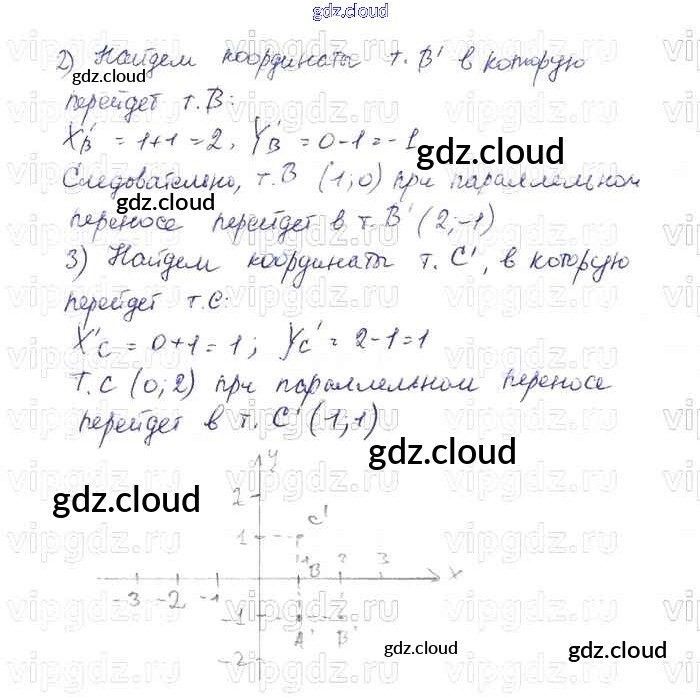 gdz.cloud
2) Найдем координаты т. B' в которую
gdz.cloud
перейдет т. B:
X'B = 1+1 = 2, Y'B = 0-1 = -1
gdz.cloud
Следовательно, т. B (1; 0) при параллельном
gdz.cloud
переносе перейдет в т. B' (2; -1)
3) Найдем координаты т. C', в которую
перейдет т. C:
X'C = 0+1 = 1; YC' = 2-1=1
Т. C (0; 2) при параллельном переносе
перейдет в т. C' (1; 1)
gdz.cloud
gdz.cloud
y
2
C'
1
1 B 2 3
-3 -2 -1 x
-1
A' B'
gdz.cloud
gdz.cloud
-2
vipgdz.ru